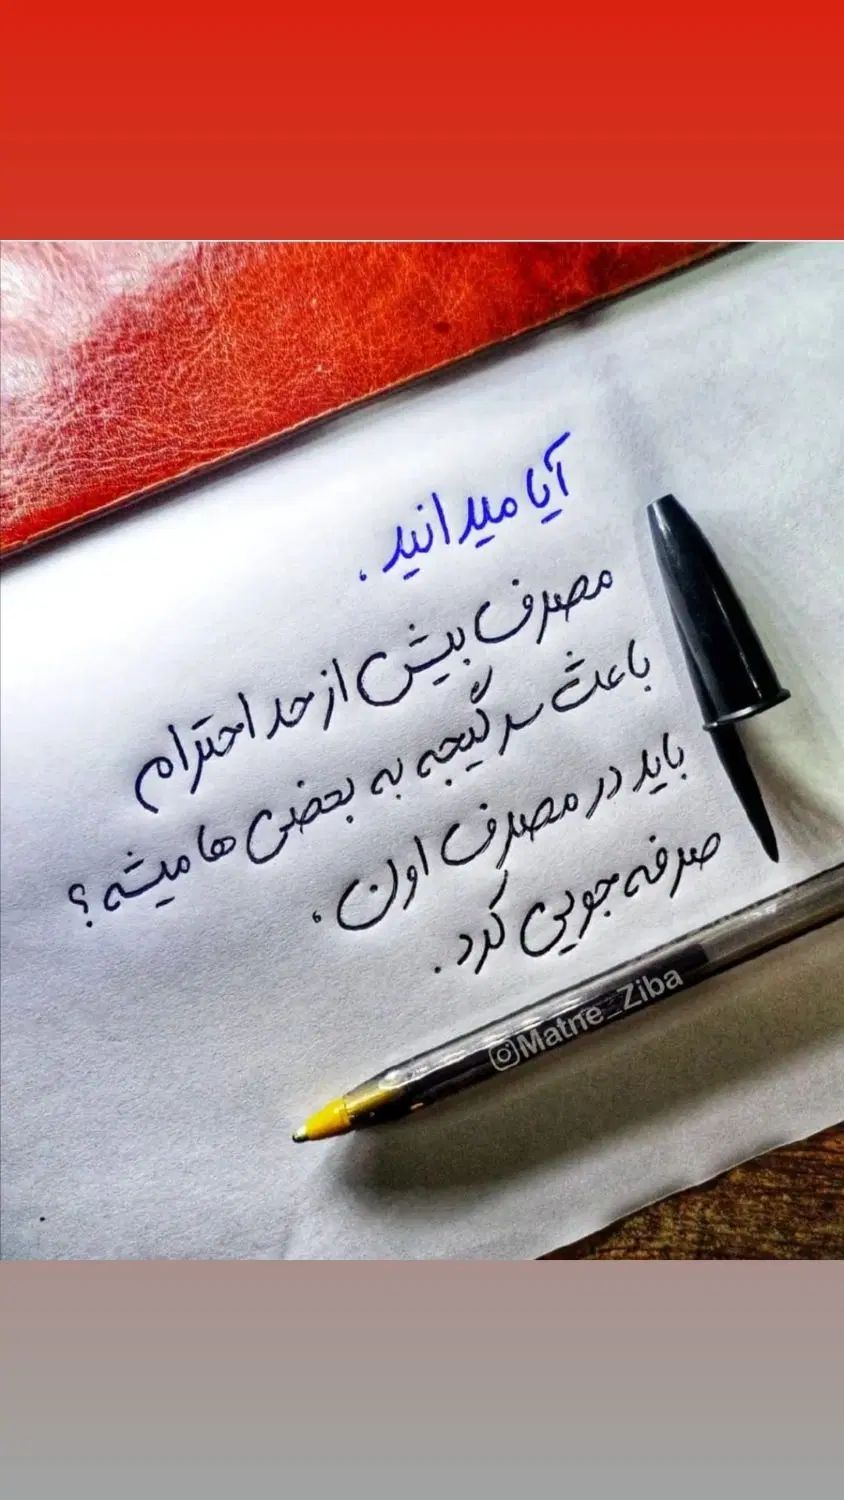 آیا میدانید.
مصرف بیش از حد احترام
باعث سرگیجه به بعضی ها میشه؟
باید در مصرف اون،
صرفه جویی کرد.
@Matne_Ziba